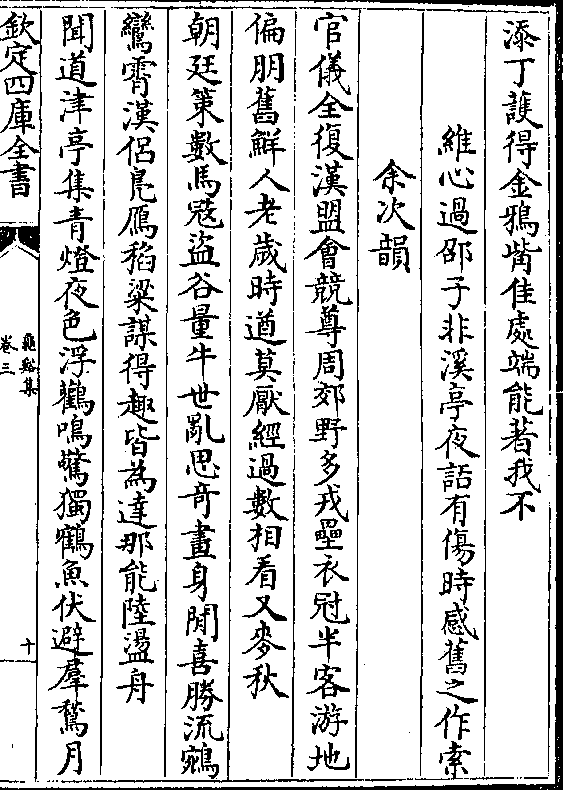 添丁護得金鴉觜佳處端能著我不
維心過邵子非溪亭夜話有傷時感舊之作索
余次韻
官儀全復漢盟會競尊周郊野多戎壘衣冠半客游地
偏朋舊鮮人老歲時遒莫厭經過數相看又麥秋
朝廷策數馬冦盜谷量牛世亂思竒畫身閒喜勝流鵷
鸞霄漢侣鳬鴈稻粱謀得趣皆為達那能陸盪舟
聞道津亭集青燈夜色浮鸛鳴驚獨鶴魚伏避羣鶖月
欽定四庫全書
龜谿集
卷三
十